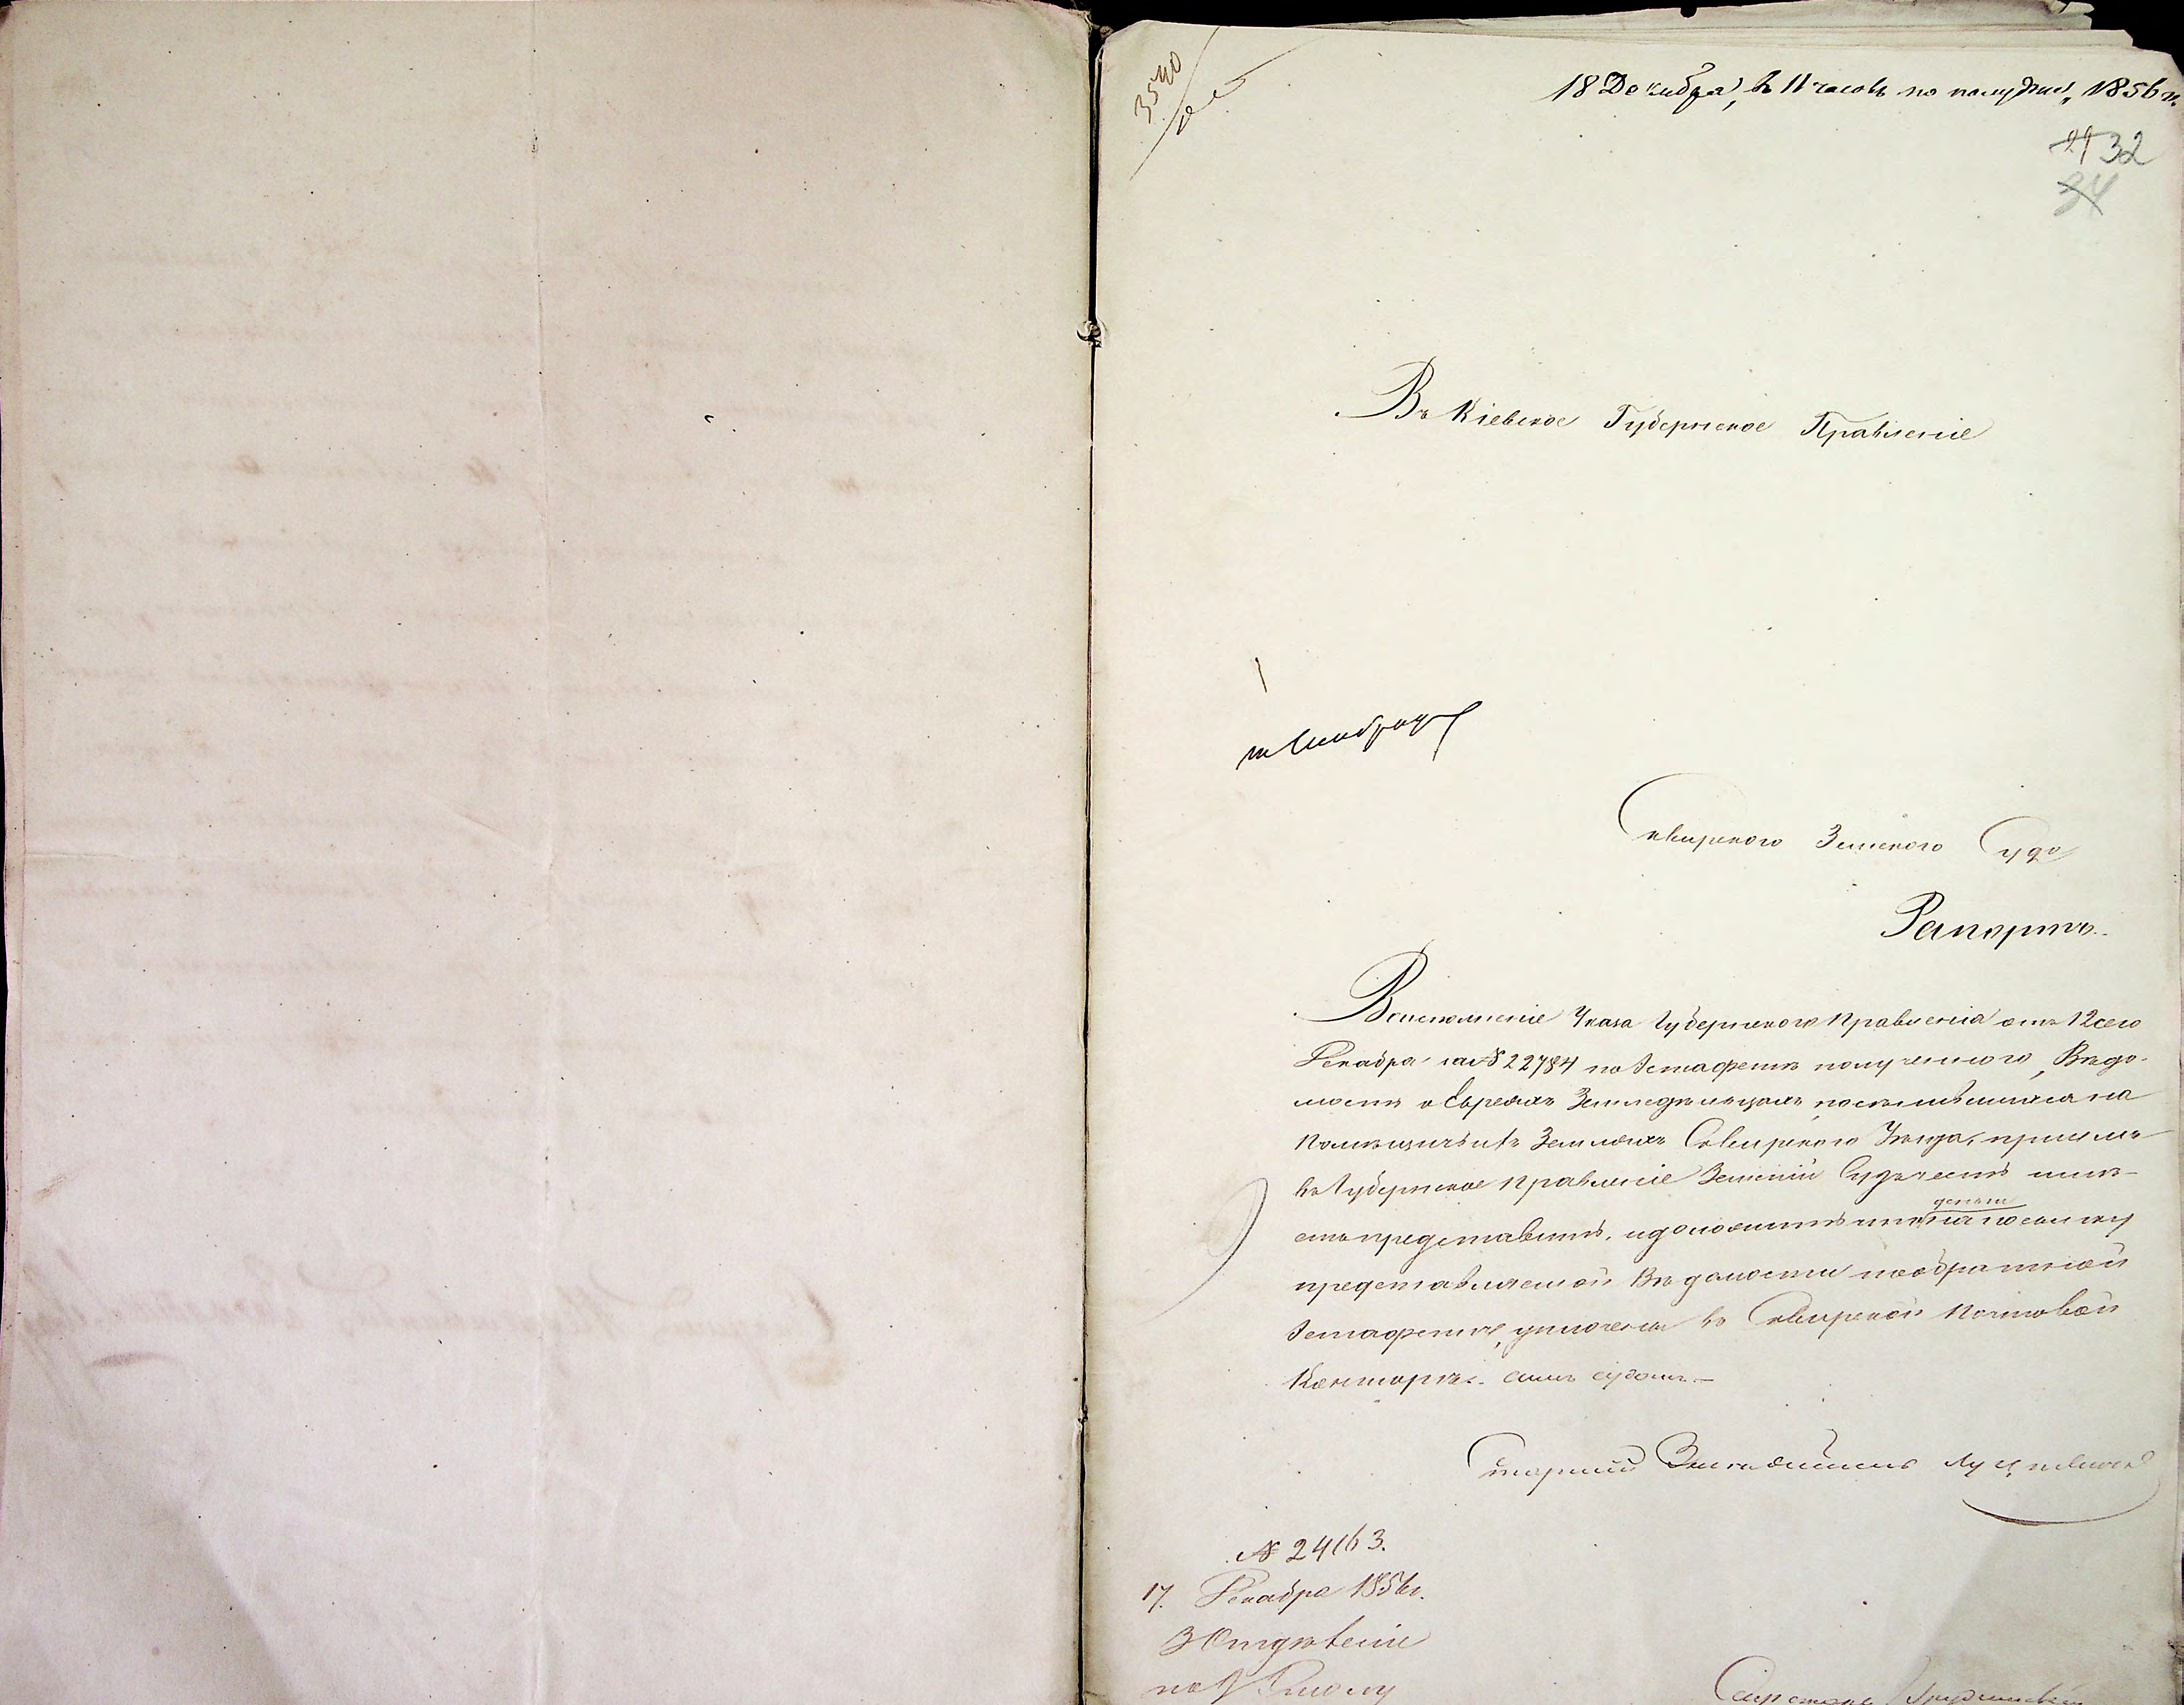 3540
18 Декабря, в 11 часовъ по полудни, 1856 г.
29 32
34
Въ Кіевское Губернское Правленіе
Сквирского Земского Суда
Рапортъ.
Воисполненіе Указа Губернского Правленія отъ 12 сего
Декабря за № 22784 по Эстафетѣ полученного, Вѣдо-
мость о Евреяхъ Земледѣльцахъ поселившихся на
Помѣщичьихъ Земляхъ Сквирского Уѣзда, при семъ
въ Губернское Правленіе Земскій Судъ честь имѣ-
етъ представить, и доложить что деньги на посылку
представляемой Вѣдомости по обратной
Эстафетѣ, уплочены въ Сквирской Почтовой
Конторѣ симъ судомъ.—
Старшій Засѣдатель
№ 24163.
17. Декабря 1856 г.
3 Отдѣленіе
по Столу
Секретарь